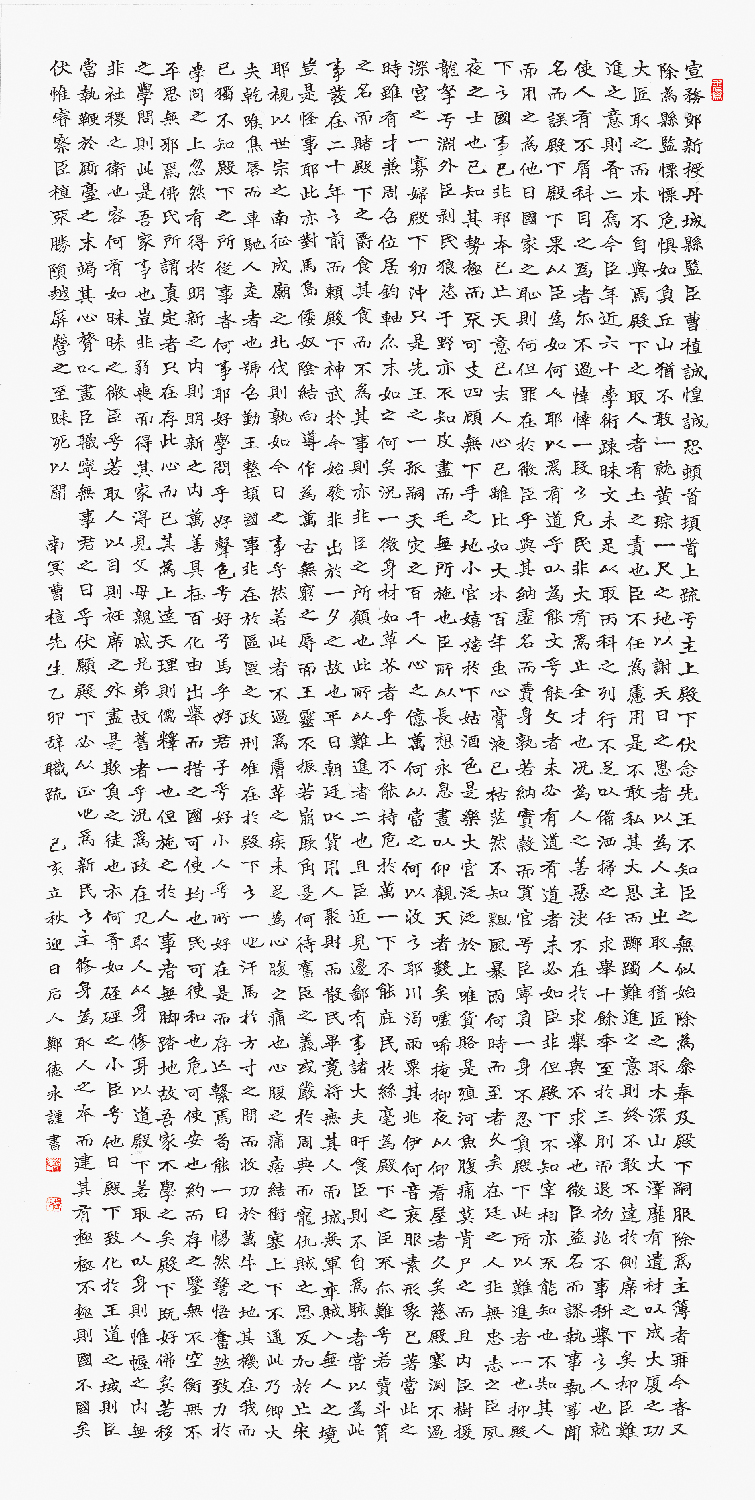 宣務郎新授丹城縣監臣曹植誠惶誠恐頓首頓首上疏于主上殿下伏念先王不知臣之無似始除為參奉及殿下嗣服除為主簿者再今者又
除為縣監慄慄危懼如負丘山猶不敢一就黃琮一尺之地以謝天日之恩者以為人主出取人猶匠之取木深山大澤靡有遺材以成大廈之功
大匠取之而木不自與焉殿下之取人者有土之責也臣不任為慮用是不敢私其大恩而躑躅難進之意則終不敢不達於側席之下矣抑臣難
進之意則者二焉今臣年近六十學術疎昧文未足以取丙科之列行不足以備洒掃之任求舉十餘年至於三刖而退初非不事科舉之人也就
使人有不屑科目之為者亦不過悻悻一段之凡民非大有為之全才也况為人之善惡決不在於求舉與不求舉也微臣盜名而謬執事執事聞
名而誤殿下殿下果以臣為如何人耶以為有道乎以為能文乎能文者未必有道有道者未必如臣非但殿下不知宰相亦不能知也不知其人
而用之為他日國家之恥則何但罪在於微臣乎與其納虛名而賣身孰若納實穀而買官乎臣寧負一身不忍負殿下此所以難進者一也抑殿
下之國事已非邦本已亡天意已去人心已離比如大木百年虫心膏液已枯茫然不知飄風暴雨何時而至者久矣在廷之人非無忠志之臣夙
夜之士也已知其勢極而不可支四顧無下手之地小官嬉嬉於下姑酒色是樂大官泛泛於上唯貨賂是殖河魚腹痛莫肯尸之而且內臣樹援
龍挐于淵外臣剥民狼恣于野亦不知皮盡而毛無所施也臣所以長想永息晝以仰觀天者數矣噓唏掩抑夜以仰看屋者久矣慈殿塞淵不過
深宮之一寡婦殿下幼沖只是先王之一孤嗣天災之百千人心之億萬何以當之何以收之耶川渴雨粟其兆伊何音哀服素形象已著當此之
時雖有才兼周召位居鈞軸亦末如之何矣況一微身材如草芥者乎上不能持危於萬一下不能庇民於絲毫為殿下之臣不亦難乎若賣斗筲
之名而賭殿下之爵食其食而不為其事則亦非臣之所願也此所以難進者二也且臣近見邊鄙有事諸大夫旰食臣則不自為駭者嘗以為此
事發在二十年之前而賴殿下神武於今始發非出於一夕之故也平日朝廷以貨用人聚財而散民畢竟將無其人而城無軍卒賊入無人之境
豈是怪事耶此亦對馬島倭奴陰結向導作為萬古無窮之辱而王靈不振若崩厥角是何待舊臣之義或嚴於周典而寵仇賊之恩反加於亡宋
耶視以世宗之南征成廟之北伐則孰如今日之事乎然若此者不過為膚革之疾未足為心腹之痛也心腹之痛痞結衝塞上下不通此乃卿大
夫乾喉焦唇而車馳人走者也號召勤王整頓國事非在於區區之政刑唯在於殿下之一心汗馬於方寸之間而收功於萬牛之地其機在我而
已獨不知殿下之所從事者何事耶好學問乎好聲色乎好弓馬乎好君子乎好小人乎所好在是而存亡繫焉苟能一日惕然警悟奮然致力於
學問之上忽然有得於明新之內則明新之內萬善具在百化由出舉而措之國可使均也民可使和也危可使安也約而存之鑒無不空衡無不
平思無邪焉佛氏所謂真定者只在存此心而已其為上達天理則儒釋一也但施之於人事者無脚踏地故吾家不學之矣殿下既好佛矣若移
之學問則此是吾家事也豈非弱喪而得其家得見父母親戚兄弟故舊者乎況為政在人取人以身修身以道殿下若取人以身則惟幄之內無
非社稷之衛也容何有如昧昧之微臣乎若取人以目則衽席之外盡是欺負之徒也亦何有如硜硜之小臣乎他日殿下致化於王道之域則臣
當執鞭於廝臺之末竭其心膂以盡臣職寧無事君之日乎伏願殿下必以正心為新民之主修身為取人之本而建其有極極不極則國不國矣
伏惟睿察臣植不勝隕越屏營之至昧死以聞 南冥曹植先生乙卯辭職疏 己亥立秋迎日后人鄭德永謹書